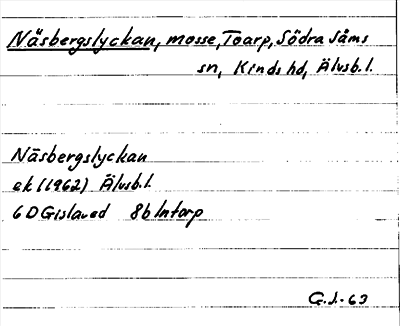 Näsbergslyckan, mosse, Toarp, Södra Såms
sn, Kinds hd, Älvsb.l.
Näsbergslyckan
ek (1962) Älvsb.l.
6D Gislaved 8b Intorp
G.J.-63